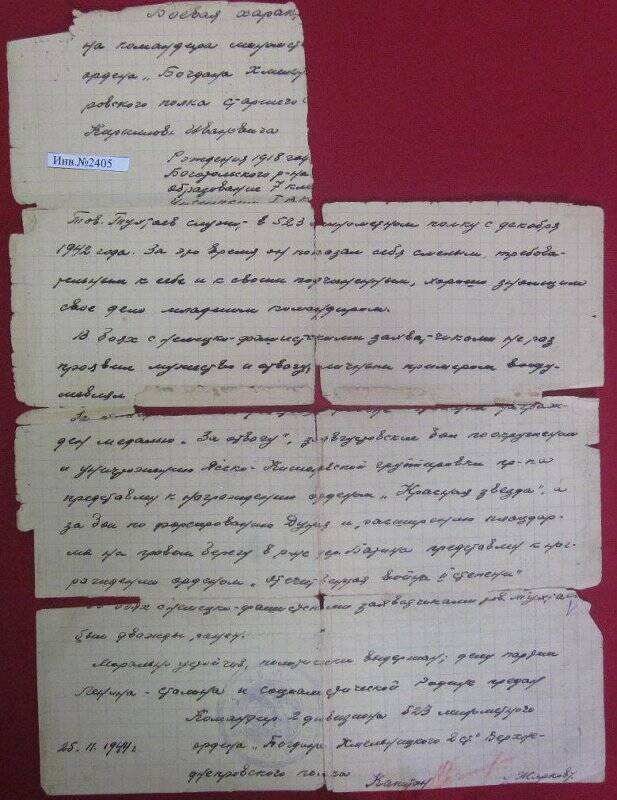 Боевая харак
на командира миномет
ордена "Богдана Хмель
ровского полка старшего
Кирилловича Ивановича
Инв.№2405
Рождения 1918 год
Боготольского р-на
образование 7 кла
Тов. Тухтаев служит в 523 минометном полку с декабря
1942 года. За это время он показал себя смелым, требова-
тельным к себе и к своим подчиненным, хорошо знающим
свое дело младшим командиром.
В боях с немецко-фашистскими захватчиками не раз
проявил мужество и отвагу, личным примером вооду-
шевляя
награж-
ден медалью "За отвагу", за августовские бои по окружению
и уничтожению Ясско-Кишиневской группировки пр-ка
представлен к награждению орденом "Красная звезда", а
за бои по форсированию Дуная и расширению плацдар-
ма на правом берегу в р-не представлен к наг-
раждению орденом "Отечественная война II степени"
В боях с немецко-фашистскими захватчиками тов. Тухтаев
был дважды ранен.
Морально устойчив, политически выдержан; делу партии
Ленина - Сталина и социалистической Родине предан
Командир 2 дивизиона 523 минометного
25.11.1944 г ордена "Богдана Хмельницкого 2 ст" Верхне-
днепровского полка
Капитан Жарков